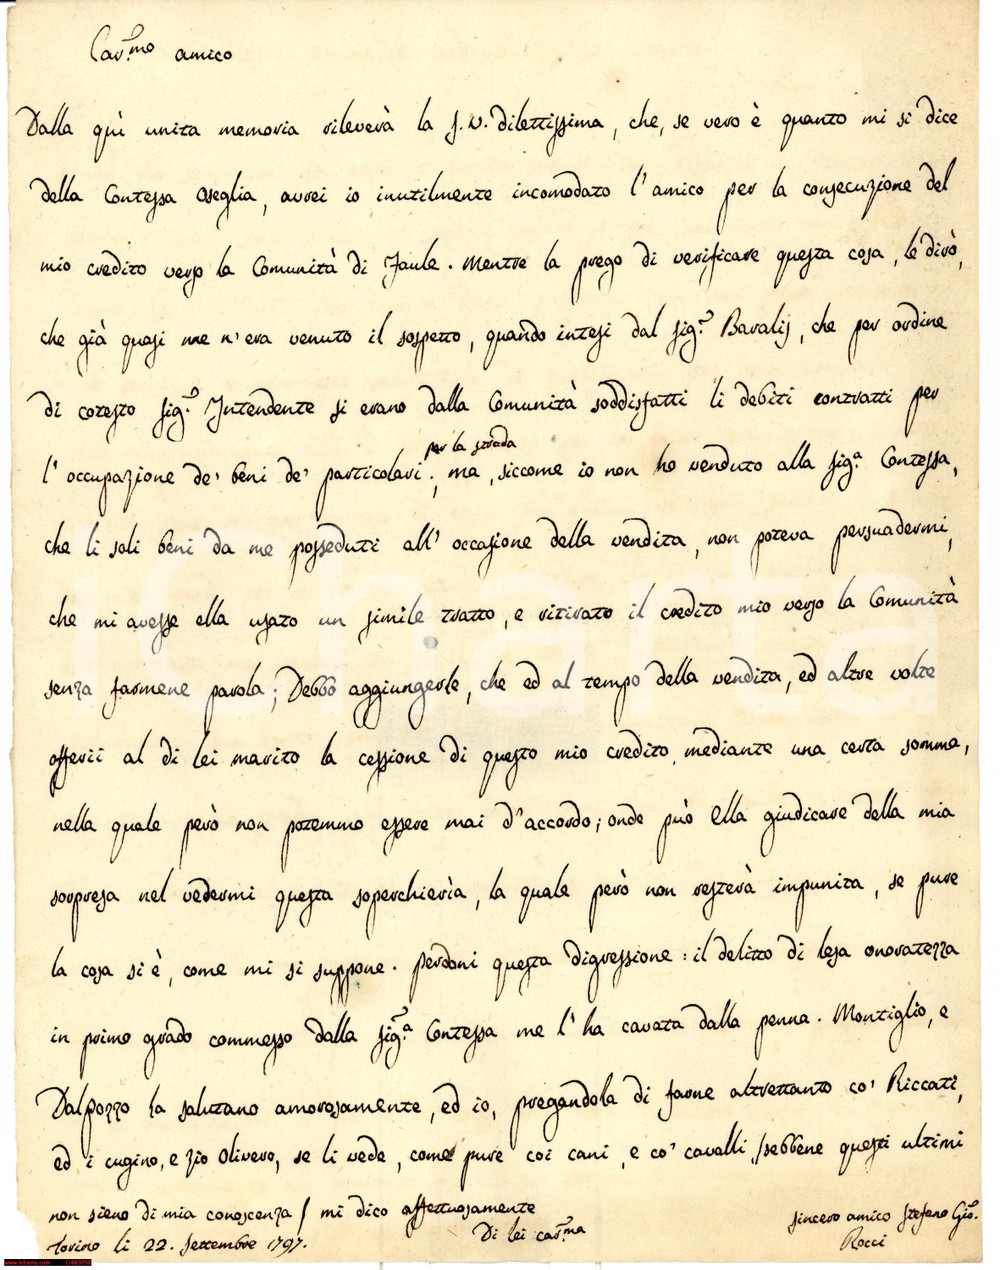 Car.mo amico
Dalla quì unita memoria rileverà la S. V. dilettissima, che, se vero è quanto mi si dice
della Contessa Oseglia, avrei io inutilmente incomodato l'amico per la consecuzione del
mio credito verso la Comunità di Faule. Mentre la prego di verificare questa cosa, le dirò,
che già quasi me n'era venuto il sospetto, quando intesi dal Sig.r Baralis, che per ordine
di cotesto Sig.r Intendente si erano dalla Comunità soddisfatti li debiti contratti per
per la strada
l'occupazione de' beni de' particolari; ma, siccome io non ho venduto alla Sig.a Contessa,
che li soli beni da me posseduti all'occasione della vendita, non poteva persuadermi,
che mi avesse ella usato un simile tratto, e ritirato il credito mio verso la Comunità
senza farmene parola; Debbo aggiungerle, che ed al tempo della vendita, ed altre volte
offerii al di lei marito la cessione di questo mio credito mediante una certa somma,
nella quale però non potemmo essere mai d'accordo; onde può Ella giudicare della mia
sorpresa nel vedermi questa soperchierìa, la quale però non resterà impunita, se pure
la cosa si è, come mi si suppone. Perdoni questa digressione: il delitto di lesa onoratezza
in primo grado commesso dalla Sig.ra Contessa me l'ha cavata dalla penna. Montiglio, e
Dalpozzo la salutano amorosamente, ed io, pregandola di farne altrettanto co' Riccati,
ed i cugino, e zio Olivero, se li vede, come pure coi cani, e co' cavalli, /sebbene questi ultimi
non sieno di mia conoscenza/ mi dico affettuosamente
Di lei car.ma
Torino li 22. Settembre 1797.
sincero amico Stefano Gio.
Rocci
www.icharta.com